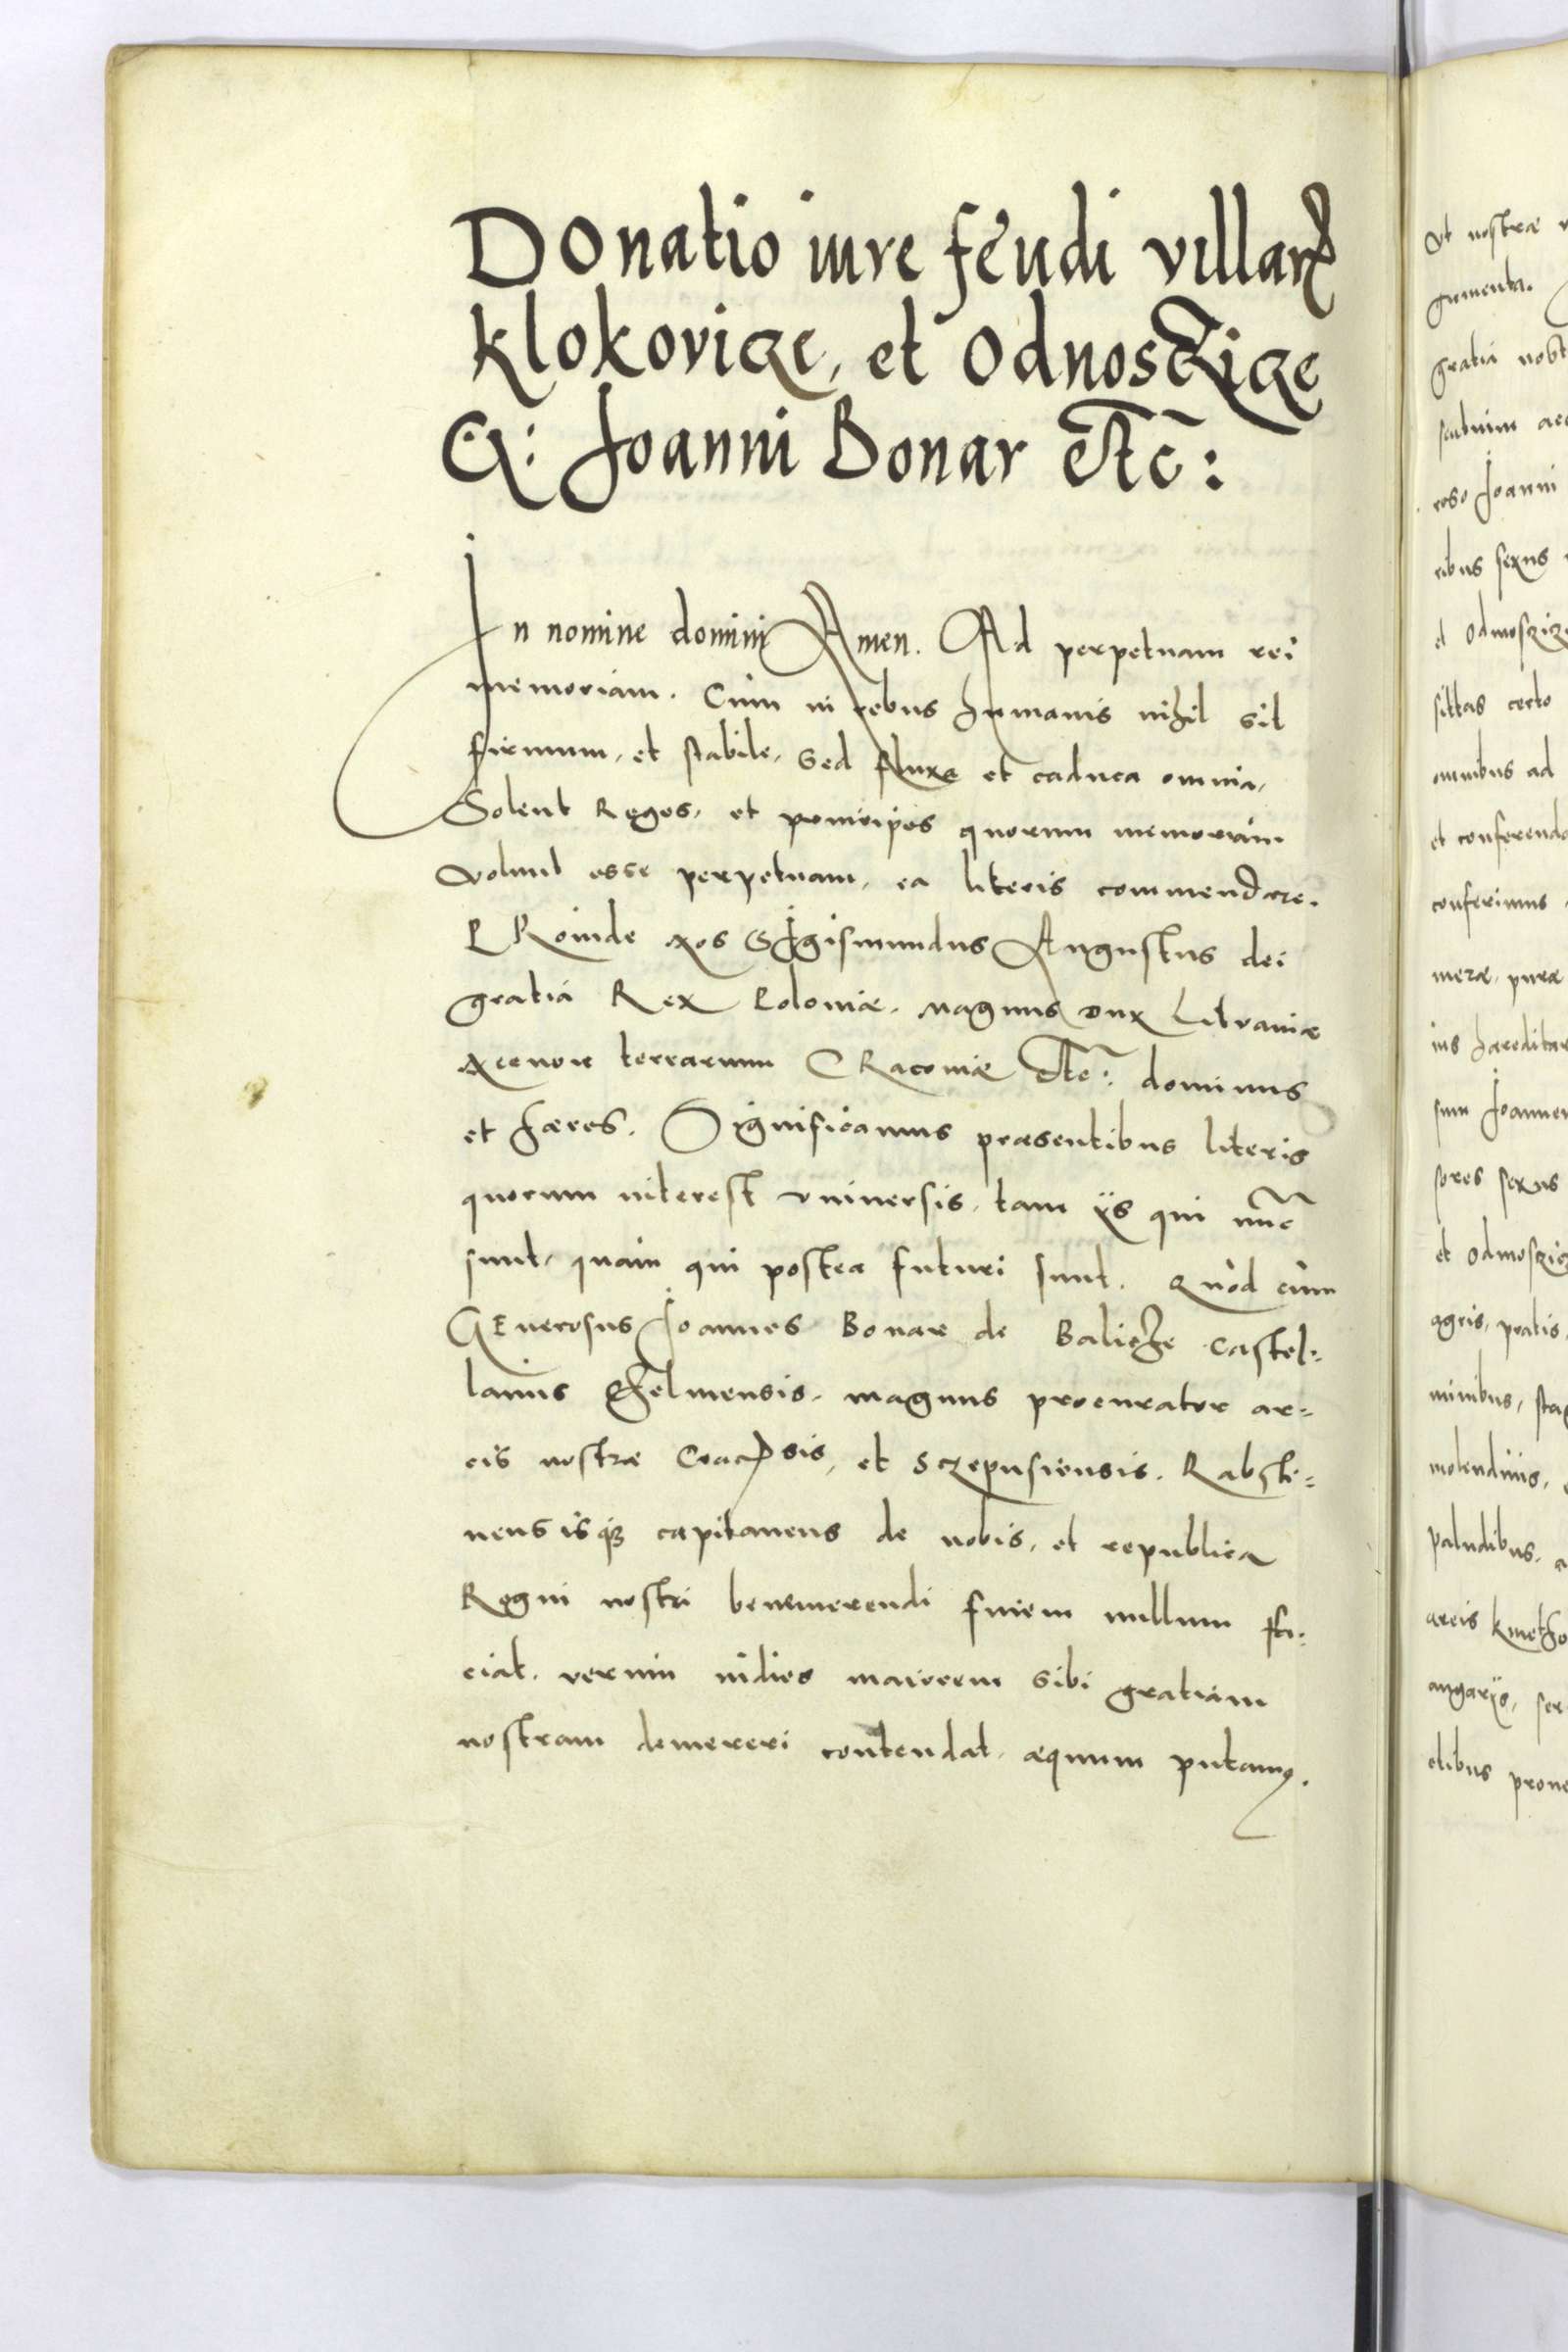 DOnatio iure feudi villarꝝ
Klokovicze, et Odnosczicze
G: Joanni Bonar etc:
In nomine domini Amen. Ad perpetuam rei
memoriam. Cùm in rebus humanis nihil sit
firmum, et stabile, sed fluxa et caduca omnia,
Solent Reges, et principes quorum memoriam
volunt esse perpetuam, ea literis commendare.
PRoinde Nos SIgismundus Augustus dei
gratia Rex Poloniæ, Magnus Dux Lituaniæ
Necnon terrarum CRacoviæ etc: dominus
et hæres. Significamus præsentibus literis
quorum interest vniversis, tam ijs qui nūc
sunt, quàm qui postea futuri sunt. Quòd cùm
GEnerosus Joannes Bonar de Balicze Castel:
lanus Chelmensis, magnus procurator ar:
cis nostræ Cracꝑsis, et Sczepusiensis, Rabsti:
nensisqꝫ capitaneus de nobis, et republica
Regni nostri benemerendi finem nullum fa:
ciat, verùm indies maiorem sibi gratiam
nostram demereri contendat, æquum putamꝰ,
Vt nostræ
gumenta.
gratia
reso Joanni
ribus sexus
et Odnoscziz
certo
omnibus ad
et conferenda
conferimus
meræ, puræ
ius hæreditar
sum Joannem
sores sexus
et Odnoscziz
agris, pratis,
minibus, stag
molendinis,
paludibus,
areis kmetho
angarijs, ser
etibus prove